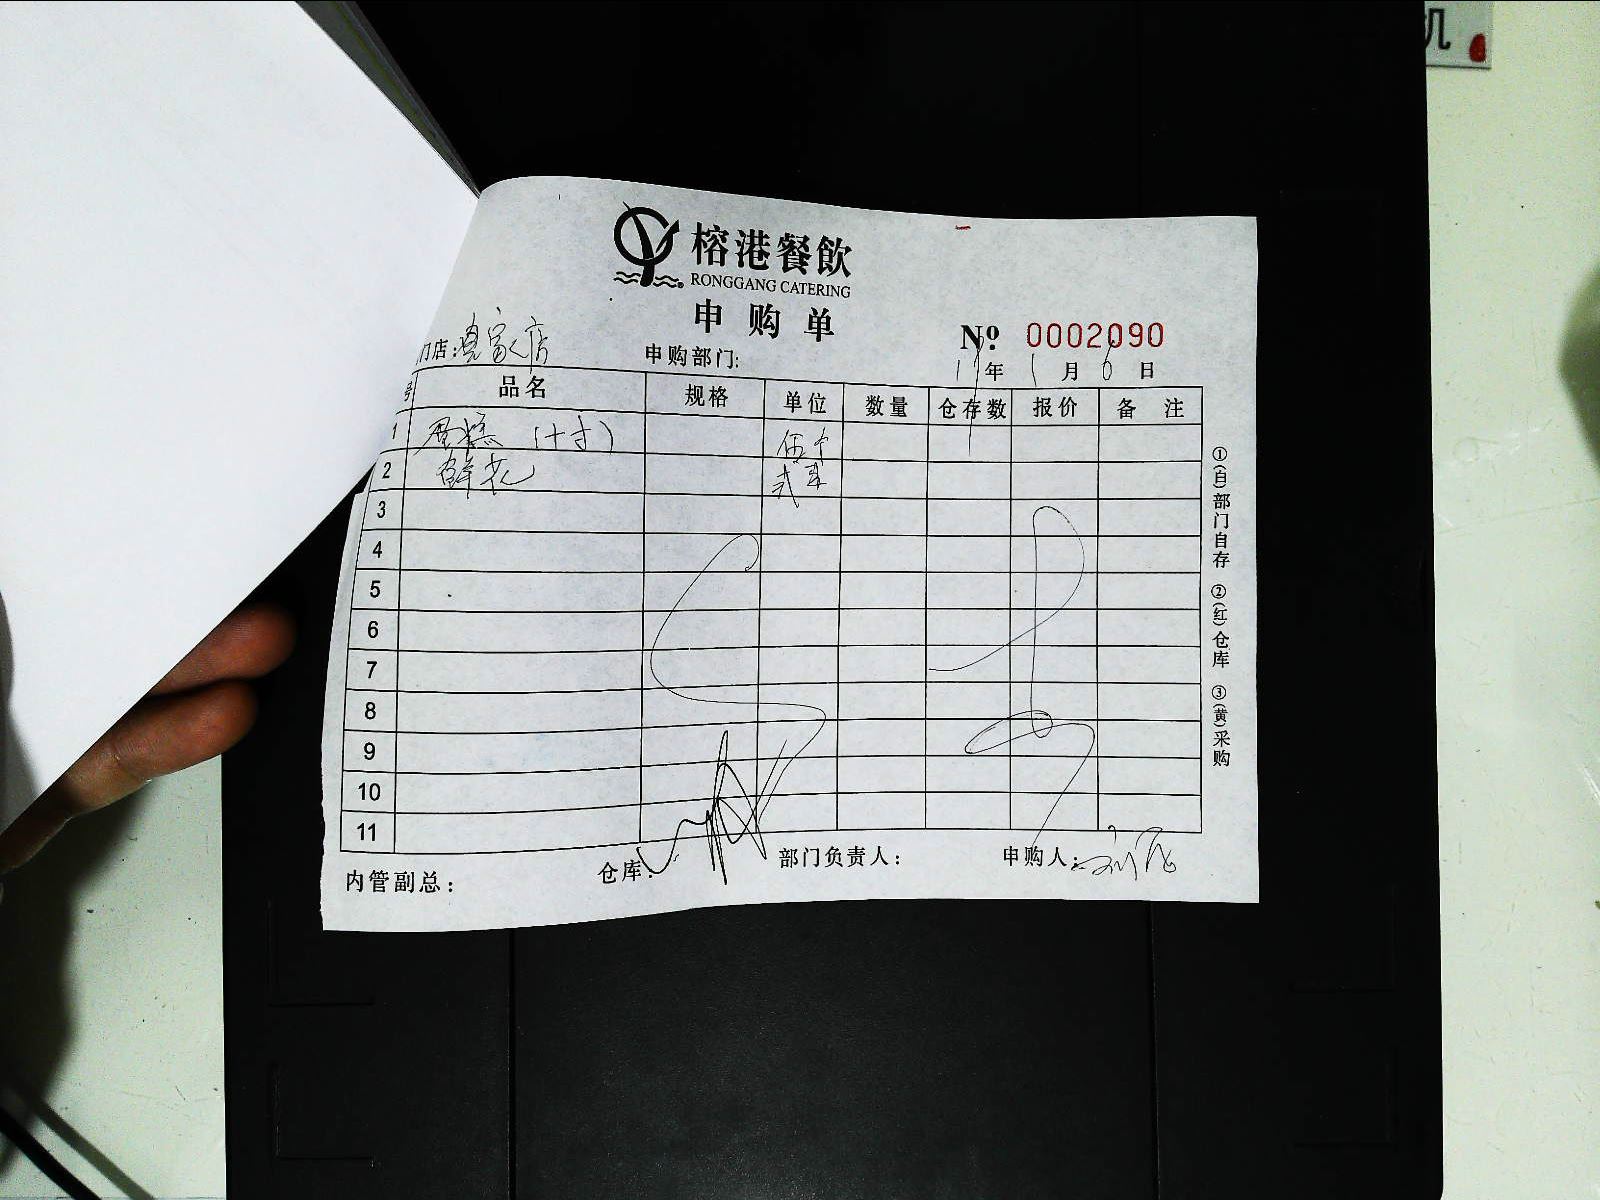 机
榕港餐飲
RONGGANG CATERING
申购单
№ 0002090
门店: 家店 申购部门:
17年1月6日
号 品名 规格 单位 数量 仓存数 报价 备注
1 蛋糕(十寸) 伍个
2 鲜花 贰
3
4
5
6
7
8
9
10
11
内管副总: 仓库: 部门负责人: 申购人:
①(白)部门自存 ②(红)仓库 ③(黄)采购